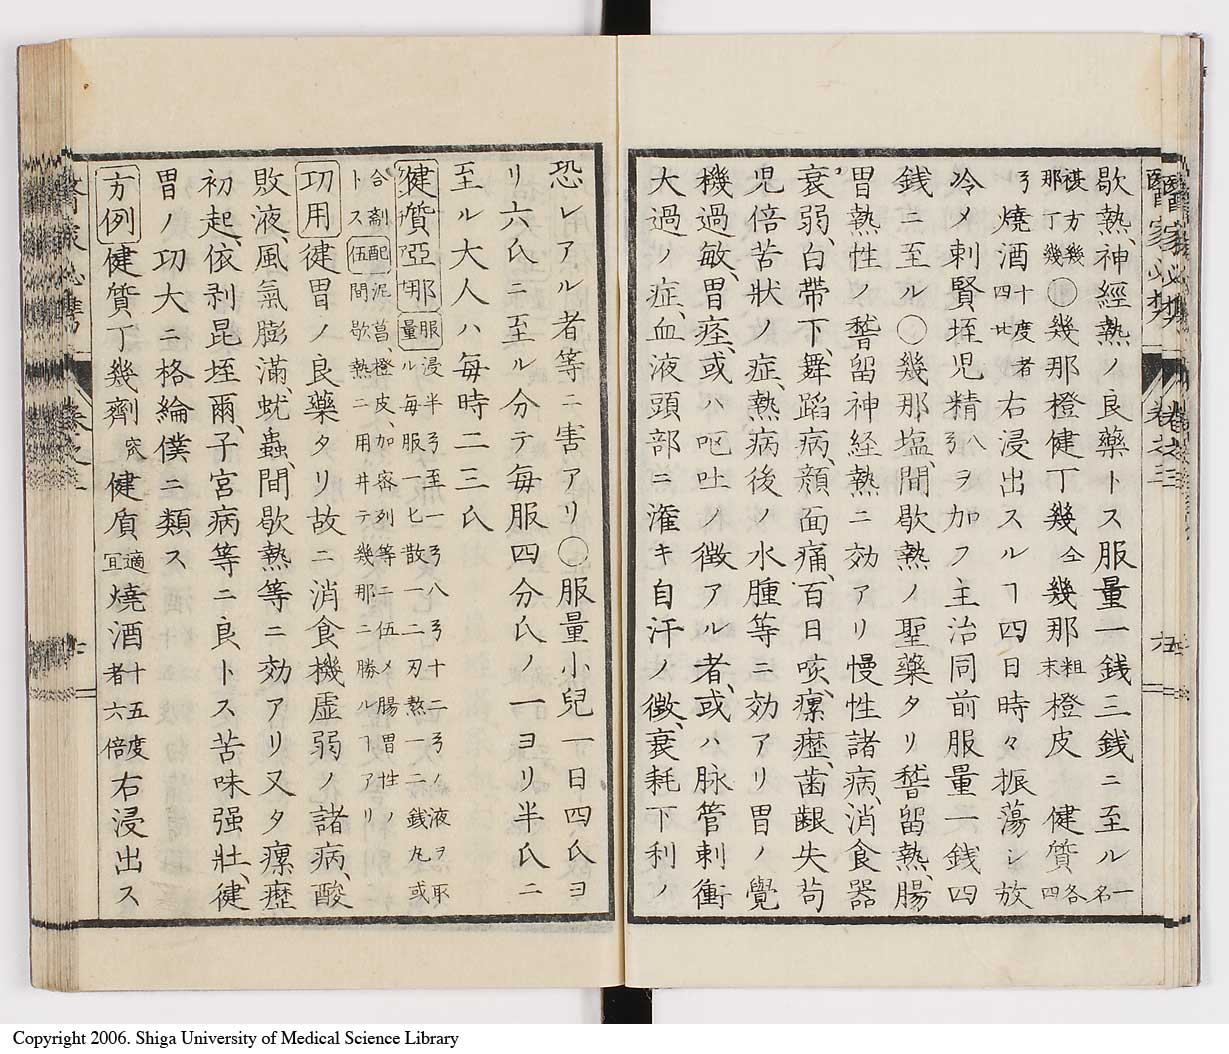 歇熱、神經熱ノ良藥トス服量一銭三銭ニ至ル一名
複方幾那丁幾〇幾那橙健丁幾仝幾那粗末橙皮 健質各四
ㄋ燒酒十度者四廿右浸出スルヿ四日時々振蕩シ放
冷メ刺賢垤児精八ㄋヲ加フ主治同前服量一銭四
銭ニ至ル〇幾那塩、間歇熱ノ聖藥タリ嵆留熱、腸
胃熱性ノ嵆留神経熱ニ効アリ慢性諸病、消食器
衰弱、白帶下、舞蹈病、顔面痛、百日咳、瘰癧、歯齦失苟
児倍苦状ノ症、熱病後ノ水腫等ニ効アリ胃ノ覺
機過敏、胃痙、或ハ呕吐ノ徴アル者、或ハ脉管刺衝
大過ノ症、血液頭部ニ潅キ自汗ノ徴、衰耗下利ノ
醫家必携 卷之三 五
恐レアル者等ニ害アリ〇服量小兒一日四氏ヨ
リ六氏ニ至ル分テ毎服四分氏ノ一ヨリ半氏ニ
至ル大人ハ毎時二三氏
健質亞那 服量 浸半ㄋ至一ㄋ八ㄋ十二ㄋノ液ヲ取ル毎服一匕散一二刃熱一二銭丸或
合剤 配伍 泥菖、橙皮、加密列等ニ伍メ腸胃性ノ間歇熱ニ用井テ幾那ニ勝ルヿアリ
功用 健胃ノ良藥タリ故ニ消食機虚弱ノ諸病、酸
敗液、風氣膨滿、蚘蟲、間歇熱等ニ効アリ又タ瘰癧
初起、依剥昆垤爾、子宮病等ニ良トス苦味强壮、健
胃ノ功大ニ格綸僕ニ類ス
方例 健質丁幾劑 健質適宜燒酒十五度者六倍右浸出ス